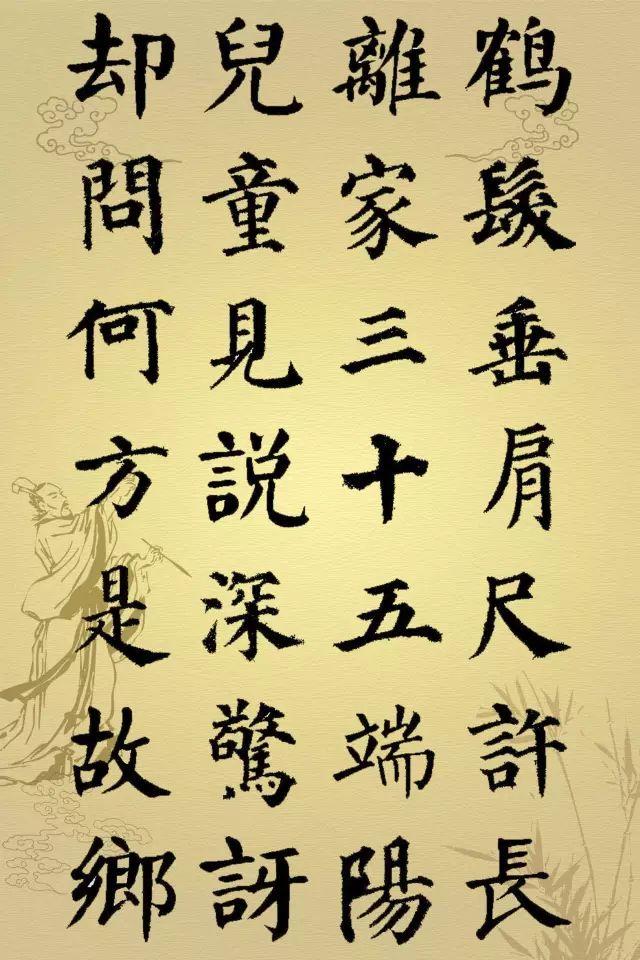 鶴髮垂肩尺許長
離家三十五端陽
兒童見説深驚訝
却問何方是故鄉